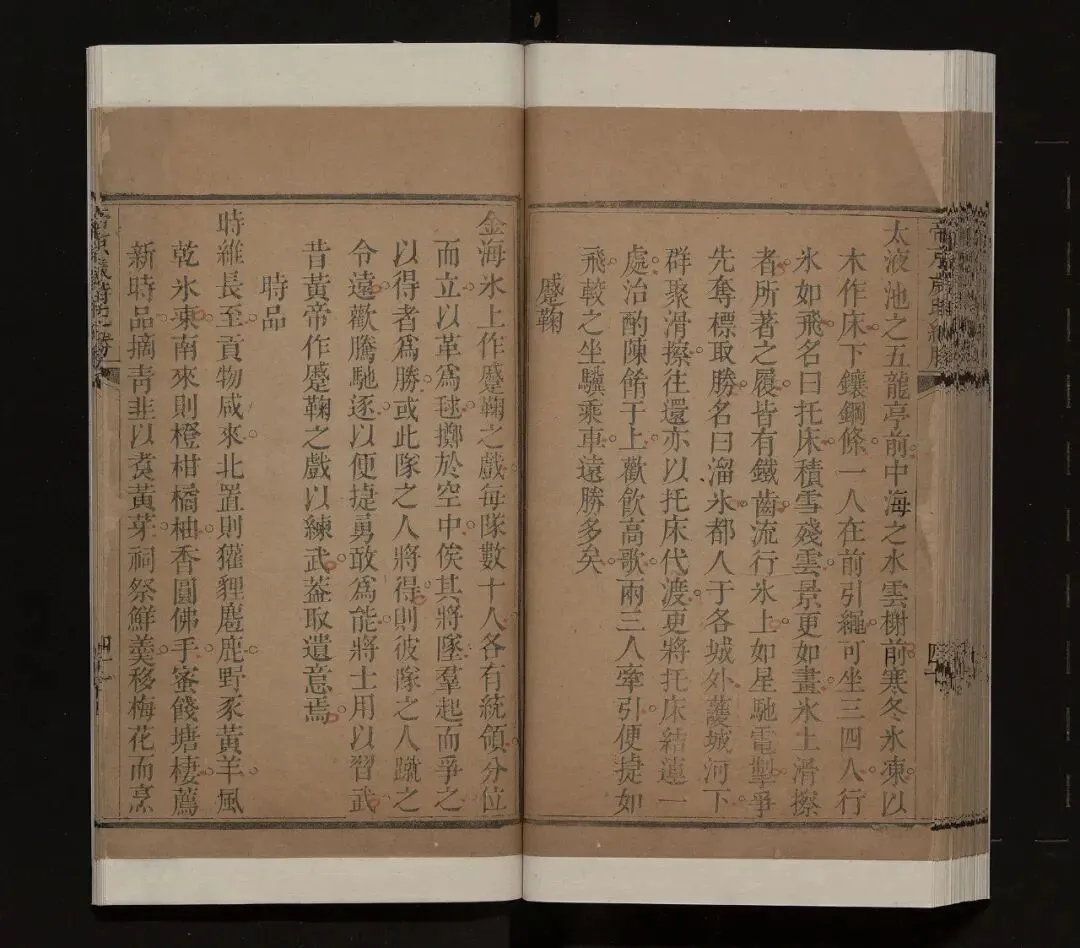 太液池之五龍亭前中海之水雲榭前寒冬氷凍以
木作床下鑲鋼條一人在前引繩可坐三四人行
氷如飛名曰扥床積雪殘雲景更如畫氷上滑擦
者所著之履皆有鐵齒流行氷上如星馳電掣爭
先奪標取勝名曰溜氷都人于各城外護城河下
群聚滑擦往還亦以扥床代渡更將扥床結連一
處治酌陳餚于上歡飲高歌兩三人牽引便捷如
飛較之坐驥乘車遠勝多矣
蹙鞠
金海氷上作蹙鞠之戲每隊數十人各有統領分位
而立以革爲毬擲於空中俟其將墜羣起而爭之
以得者爲勝或此隊之人將得則彼隊之人蹴之
令遠歡騰馳逐以便捷勇敢爲能將士用以習武
昔黃帝作蹙鞠之戲以練武葢取遺意焉
時品
時維長至貢物咸來北置則獾貍麅鹿野豕黃羊風
乾氷凍南來則橙柑橘柚香圓佛手蜜餞塘棲薦
新時品摘青韭以煑黃芽祠祭鮮羹移梅花而烹